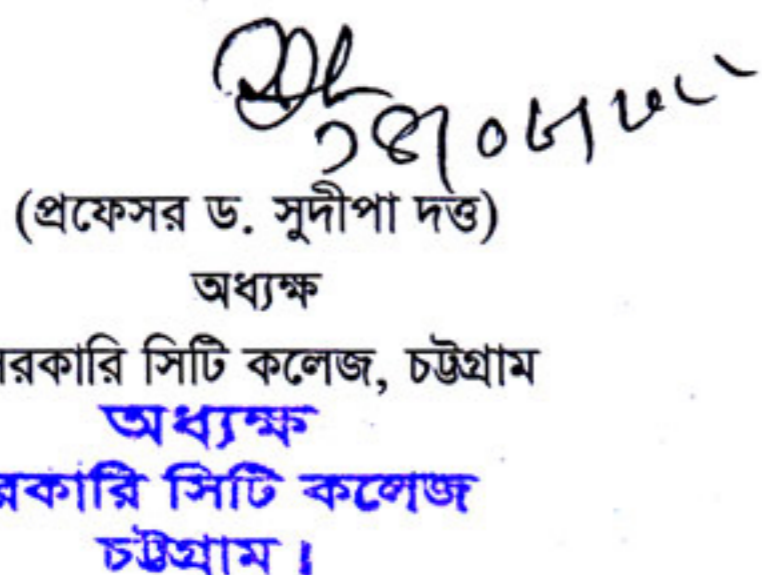 (প্রফেসর ড. সুদীপা দত্ত)
অধ্যক্ষ
সরকারি সিটি কলেজ, চট্টগ্রাম
অধ্যক্ষ
সরকারি সিটি কলেজ
চট্টগ্রাম।